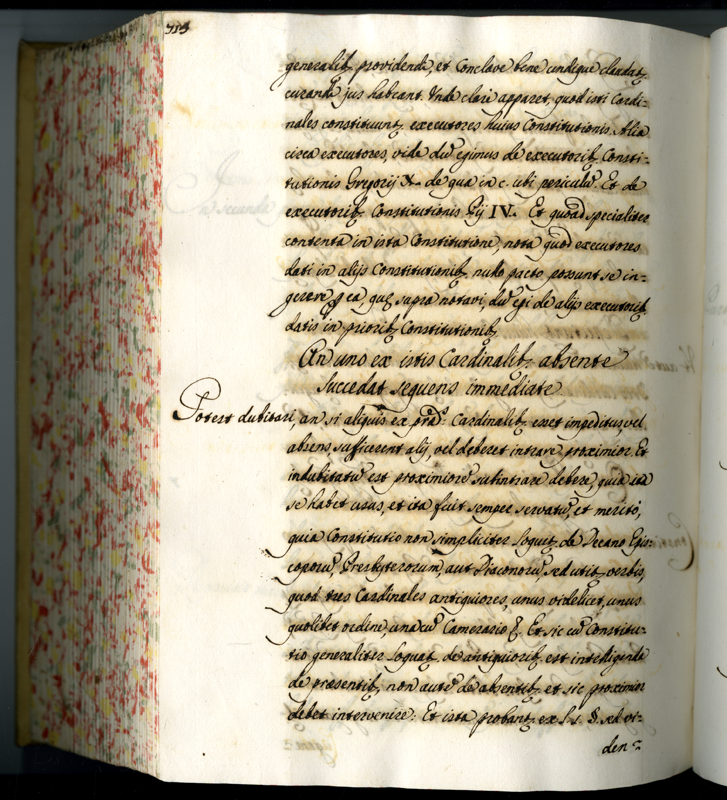 generalitz providendi, et Conclave bene undique claudatz
curandi jus habeant. Unde clare apparet, quod isti Cardi-
nales constituuntz executores huius Constitutionis. Alia
circa executores, vide du' egimus de executoribz Consti-
tutionis Gregorij X. de qua in c. ubi periculu'. Et de
executoribz Constitutionis Pij IV. Et quoad specialiter
contenta in ista Constitutione, nota quod executores
dati in alijs Constitutionibz nullo pacto possunt se in-
gerere p ea, quę supra notavi, du' egi de alijs executoribz
datis in prioribz Constitutionibz
An uno ex istis Cardinalibz absente
succedat sequens immediate
Potest dubitari, an si aliquis ex præd.s Cardinalibz esset impeditus, vel
absens, sufficerent alij, vel deberet intrare proximior. Et
indubitatu' est proximiore' subintrare debere, quia ita
se habet usus, et ita fuit semper servatu', et merito,
quia Constitutio non simpliciter loquitz de Decano Epis-
coporu', Presbyterorum, aut Diaconoru', sed utitz verbis,
quod tres Cardinales antiquiores, unus videlicet, unus
quolibet ordine, una cu' Camerario &. Et sic cu' Constitu-
tio generaliter loquatz de antiquioribz est intelligenda
de præsentibz non aute' de absentibz, et sic proximior
debet intervenire: Et ista probantz ex l. 1. §. sed vi-
den-